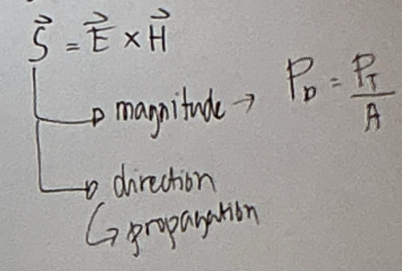 S⃗ = E⃗ × H⃗
magnitude → P_D = P_T / A
direction
↳ propagation